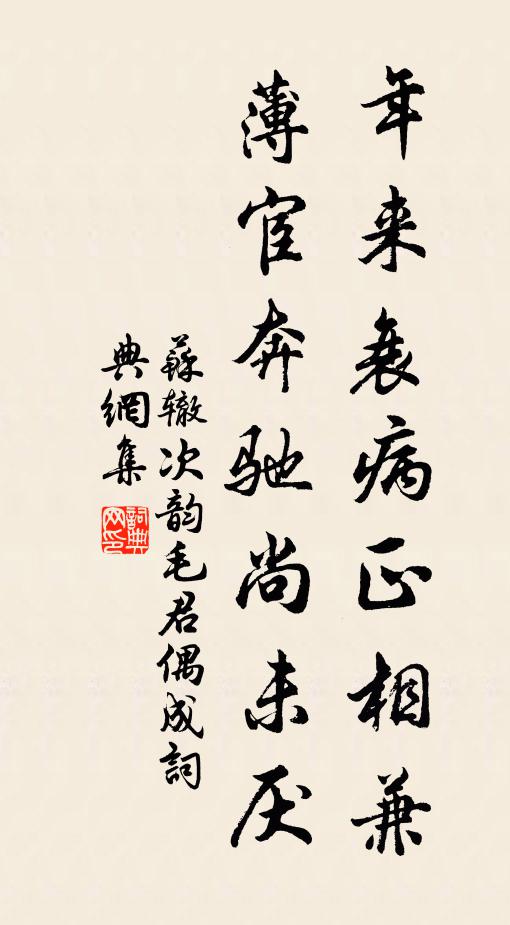 年来衰病正相兼
薄宦奔驰尚未厌
蘇辙次韵毛君偶成詞
典網集
詞典网印